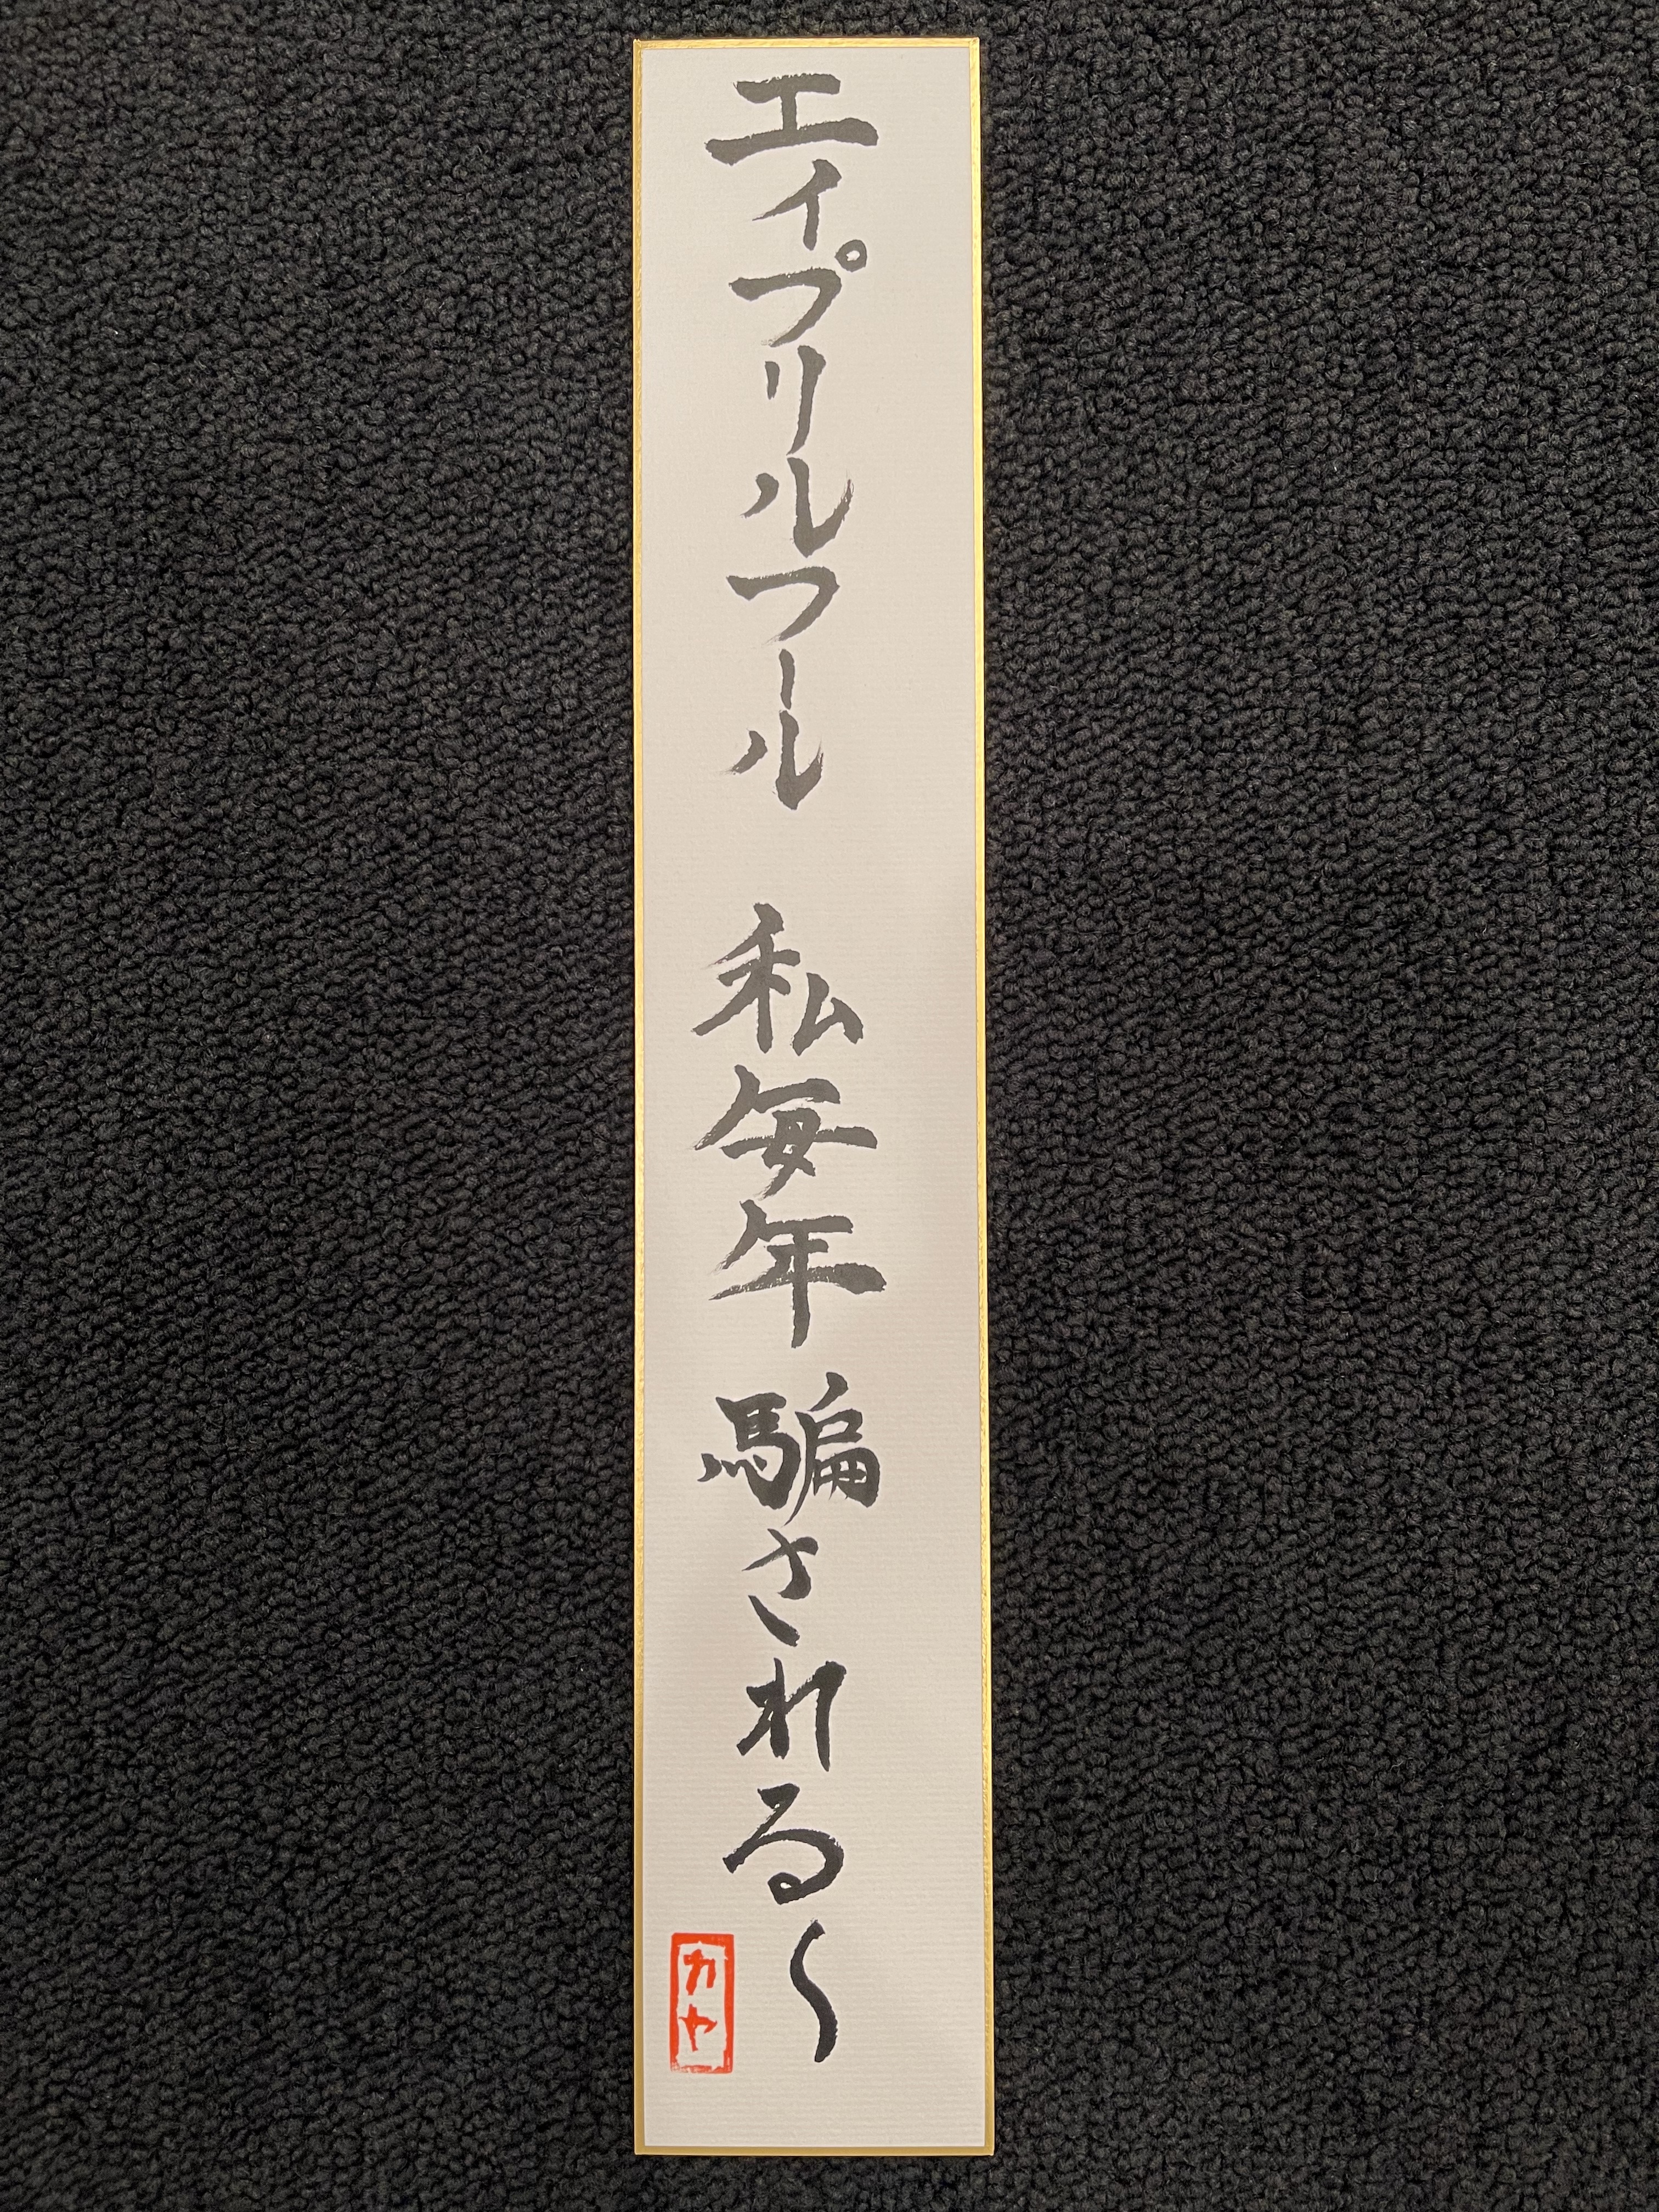 エイプリルフール 私毎年騙される〜
カヤ